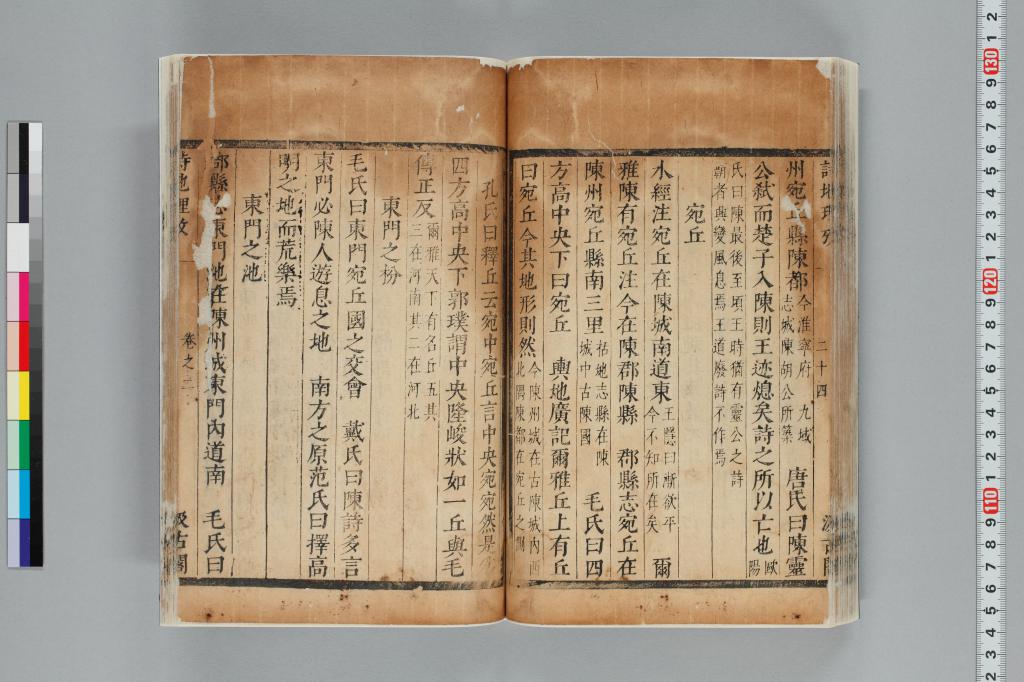 詩地理攷 二十四 汲古閣
州宛丘縣陳都今淮寧府 九域志城陳胡公所築 唐氏曰陳靈
公弒而楚子入陳則王迹熄矣詩之所以亡也歐陽
氏曰陳最後至頃王時猶有靈公之詩
朝者興變風息焉王道廢詩不作焉
宛丘
水經注宛丘在陳城南道東王隱曰漸欲平今不知所在矣 爾
雅陳有宛丘注今在陳郡陳縣 郡縣志宛丘在
陳州宛丘縣南三里括地志縣在陳城中古陳國 毛氏曰四
方高中央下曰宛丘 輿地廣記爾雅丘上有丘
曰宛丘今其地形則然今陳州城在古陳城內西北隅陳都在宛丘之
孔氏曰釋丘云宛中宛丘言中央宛宛然是
四方高中央下郭璞謂中央隆峻狀如一丘與毛
傳正反爾雅天下有名丘五其三在河南其二在河北
東門之枌
毛氏曰東門宛丘國之交會 戴氏曰陳詩多言
東門必陳人遊息之地 南方之原范氏曰擇高
明之地而荒樂焉
東門之池
郡縣志東門池在陳州城東門內道南 毛氏曰
詩地理攷 卷之二 汲古閣